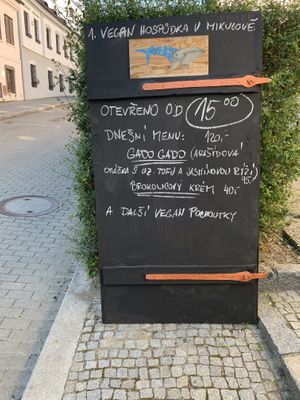 1. VEGAN HOSPŮDKA V MIKULOVĚ
OTEVŘENO OD 15⁰⁰
DNEŠNÍ MENU: 120,-
GADO GADO (ARAŠÍDOVÁ
OMÁČKA S UZ. TOFU A JASMÍNOVOU RÝŽÍ
95,-
BROKOLICOVÝ KRÉM 40,-
A DALŠÍ VEGAN POCHOUTKY